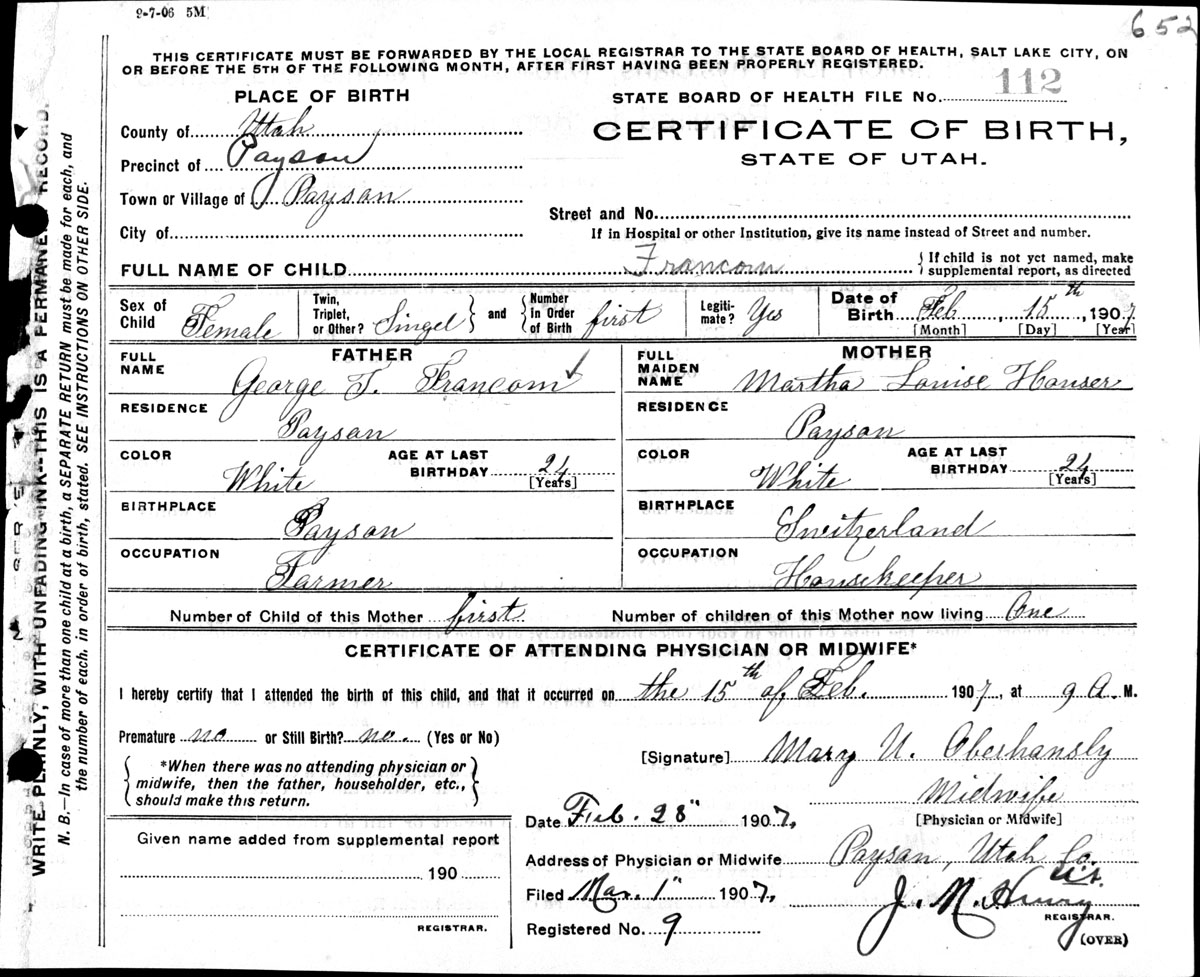 9-7-06 5M
652
THIS CERTIFICATE MUST BE FORWARDED BY THE LOCAL REGISTRAR TO THE STATE BOARD OF HEALTH, SALT LAKE CITY, ON
OR BEFORE THE 5TH OF THE FOLLOWING MONTH, AFTER FIRST HAVING BEEN PROPERLY REGISTERED.
PLACE OF BIRTH
STATE BOARD OF HEALTH FILE No. 112
County of Utah
CERTIFICATE OF BIRTH,
STATE OF UTAH.
Precinct of Payson
Town or Village of Payson
Street and No.
City of
If in Hospital or other Institution, give its name instead of Street and number.
FULL NAME OF CHILD Francom { If child is not yet named, make supplemental report, as directed
Sex of Child Female
Twin, Triplet, or Other? Singel } and { Number in Order of Birth first
Legiti-mate? Yes
Date of Birth Feb 15th, 1907
[Month] [Day] [Year]
FATHER
FULL NAME George T. Francom
RESIDENCE Payson
COLOR White AGE AT LAST BIRTHDAY 24 [Years]
BIRTHPLACE Payson
OCCUPATION Farmer
MOTHER
FULL MAIDEN NAME Martha Louise Houser
RESIDENCE Payson
COLOR White AGE AT LAST BIRTHDAY 24 [Years]
BIRTHPLACE Sweitzerland
OCCUPATION Housekeeper
Number of Child of this Mother first Number of children of this Mother now living One
CERTIFICATE OF ATTENDING PHYSICIAN OR MIDWIFE*
I hereby certify that I attended the birth of this child, and that it occurred on the 15th of Feb. 1907, at 9 A. M.
Premature no or Still Birth? no. (Yes or No)
*When there was no attending physician or
midwife, then the father, householder, etc.,
should make this return.
[Signature] Mary U. Oberhansly
Midwife
[Physician or Midwife]
Date Feb. 28" 1907,
Given name added from supplemental report
190
REGISTRAR.
Address of Physician or Midwife Payson, Utah Co.
Filed Mar. 1" 1907,
J. N. Henry
REGISTRAR.
Registered No. 9
(OVER)
WRITE PLAINLY, WITH UNFADING INK--THIS IS A PERMANENT RECORD.
N. B.—In case of more than one child at a birth, a SEPARATE RETURN must be made for each, and
the number of each, in order of birth, stated. SEE INSTRUCTIONS ON OTHER SIDE.